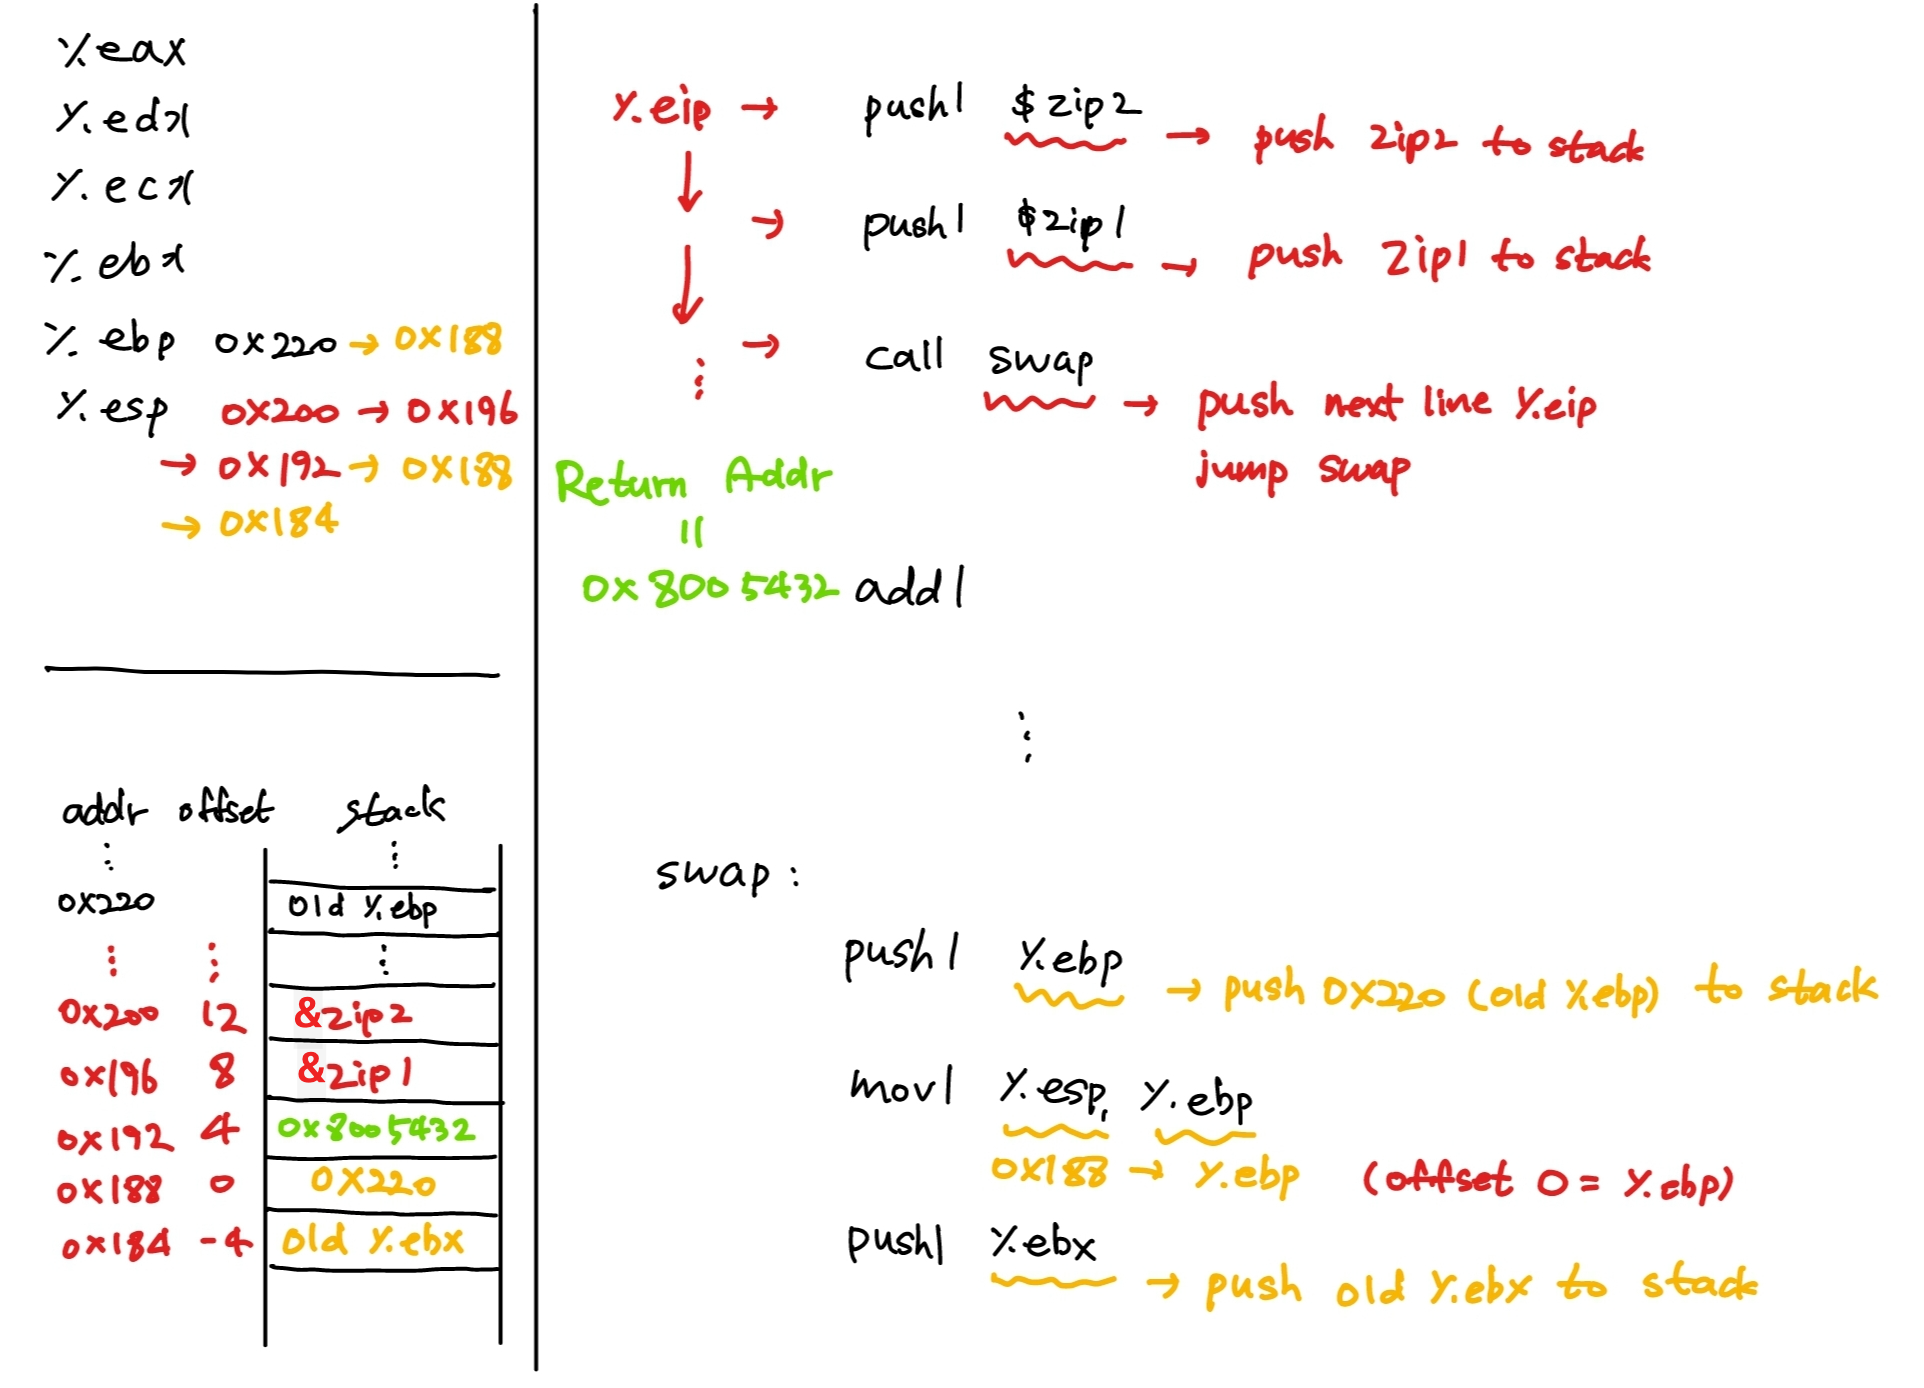 %eax
%edx
%ecx
%ebx
%ebp 0x220 → 0x188
%esp 0x200 → 0x196
→ 0x192 → 0x188
→ 0x184
addr offset stack
0x220 old %ebp
0x200 12 &zip2
0x196 8 &zip1
0x192 4 0x8005432
0x188 0 0x220
0x184 -4 old %ebx
%eip → pushl $zip2 → push zip2 to stack
→ pushl $zip1 → push zip1 to stack
→ call swap → push next line %eip
jump swap
Return Addr
=
0x8005432 addl
swap:
pushl %ebp → push 0x220 (old %ebp) to stack
movl %esp, %ebp
0x188 → %ebp (offset 0 = %ebp)
pushl %ebx → push old %ebx to stack